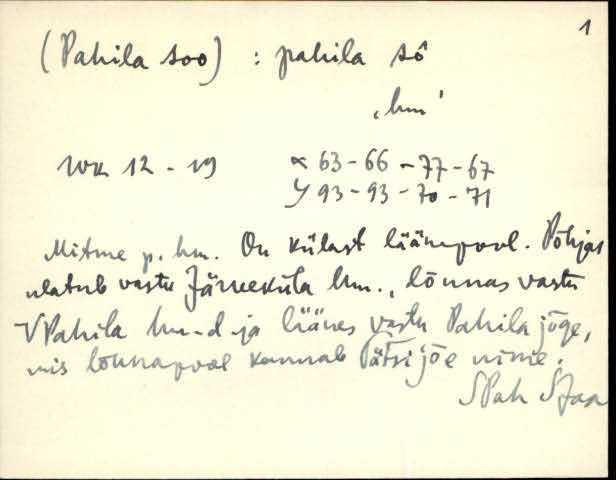 1
(Pahila soo) : pahila sô
‚hm'
WK 12 - 19 x 63-66-77-67
y 93-93-70-71
Mitme p. hm. On külast läänepool. Põhjas
ulatub vastu Järveküla hm., lõunas vastu
VPahila hm-d ja läänes vastu Pahila jõge,
mis lõunapool kannab Pätsi jõe nime.
SPah SJaa